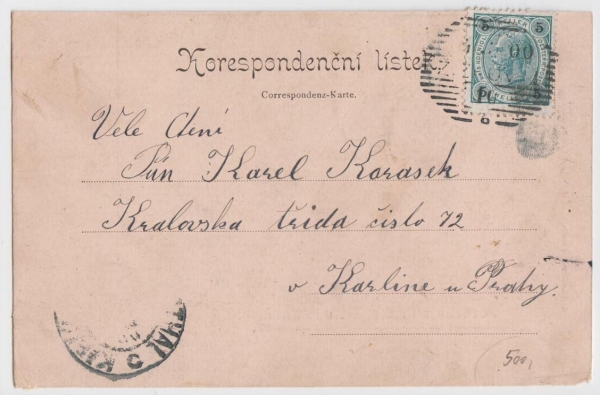 Korespondenční lístek
Correspondenz-Karte.
5 5
00
Vele Ctění
Pán Karel Karasek
Kralovska třida čislo 72
v Karline u Prahy.
500,